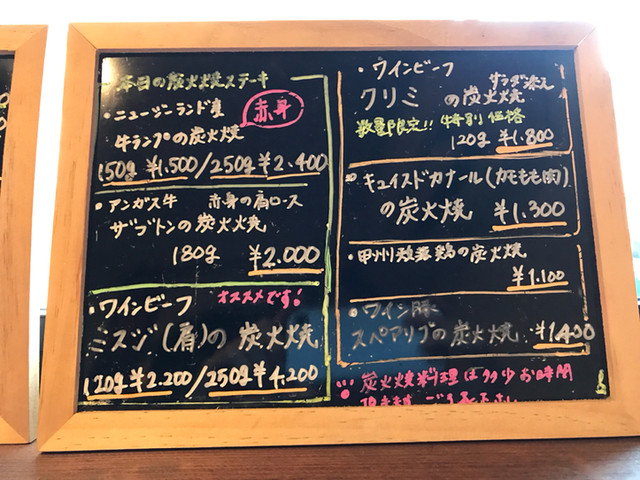 本日の炭火焼ステーキ
・ニュージーランド産
赤身
牛ランプの炭火焼
150g ¥1.500/250g ¥2.400
・アンガス牛 赤身の肩ロース
ザブトンの炭火焼
180g ¥2.000
・ワインビーフ オススメです!
ミスジ(肩)の炭火焼
120g ¥2.200/250g ¥4.200
・ワインビーフ
クリミの炭火焼 サラダ添え
数量限定!! 特別価格
120g ¥1.800
キュイスドカナール(カモもも肉)
の炭火焼 ¥1.300
・甲州 鶏の炭火焼
¥1.100
・ワイン豚
スペアリブの炭火焼 ¥1.400
炭火焼料理は多少お時間
頂きます ご了承下さい